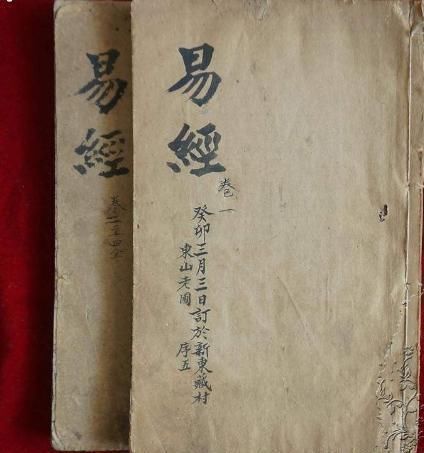 易經
卷一
癸卯三月三日訂於新東藏村
東山老圃
序五
易經
卷二至四全